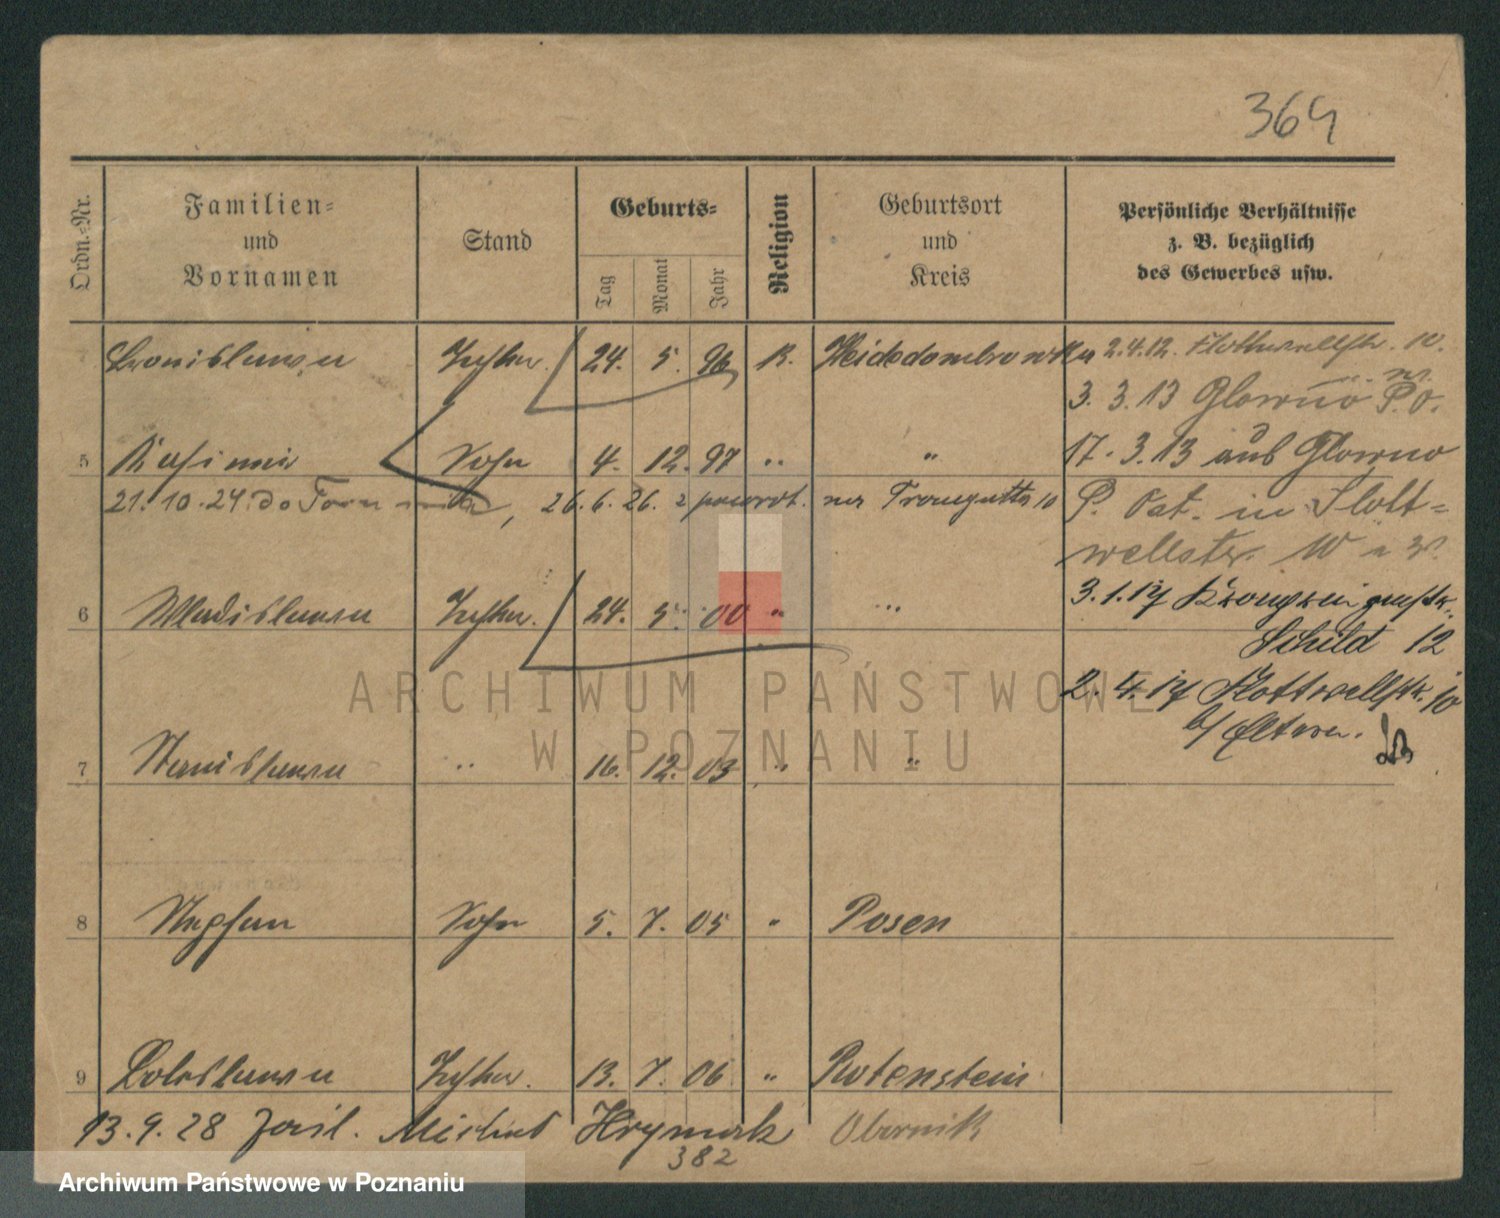 364
Ordn.-Nr.
Familien-
und
Vornamen
Stand
Geburts-
Tag
Monat
Jahr
Religion
Geburtsort
und
Kreis
Persönliche Verhältnisse
z. B. bezüglich
des Gewerbes usw.
Bronislawa Tochter. 24. 5. 96 K. Heidedombrowka 2.4.12. Flottwellstr. 10.
3. 3.13 Glowno P.O.
5 Kasimir Sohn 4. 12. 97 " " 17. 3.13 aus Glowno
21.10.24. do 26.6.26. z powrot. Traugutta 10 P. Ost. in Flott=
wellstr. 10
6 Wladislawa Tochter. 24. 5. 00 " " 3.1.17 Kronprinzenstr.
Schild 12
2. 4. 17 Flottwellstr. 10
b/ Eltern.
7 Stanislawa " 16. 12. 03 " "
8 Stephan Sohn 5. 7. 05 " Posen
9 Boleslawa Tochter. 13. 7. 06 " Rotenstein
13.9.28 Obornik
382
ARCHIWUM PAŃSTWOWE
W POZNANIU
Archiwum Państwowe w Poznaniu